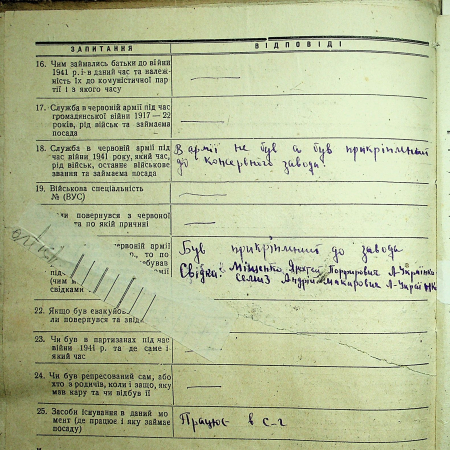 ЗАПИТАННЯ
ВІДПОВІДІ
16. Чим займались батьки до війни
1941 р. і в даний час та належ-
ність їх до комуністичної парт
ії і з якого часу
17. Служба в червоній армії під час
громадянської війни 1917—22
років, рід військ та займаєма
посада
18. Служба в червоній армії під
час війни 1941 року, який час,
рід військ, останнє військове
звання та займаєма посада
В армії не був а був прикріплений
до консервного завода
19. Військова спеціальність
№ (ВУС)
повернувся з червоної
та по якій причині
червоній армії
то по
був
свідками
Був прикріплений до завода
Свідки: Міщенко Андрей Порфирович
Андрій Макарович
22. Якщо був евакуйов
ли повернувся та звід
23. Чи був в партизанах під час
війни 1941 р. та де саме і
який час
24. Чи був репресований сам, або
хто з родичів, коли і защо, яку
мав кару та чи відбув її
25. Засоби існування в даний мо
мент (де працює і яку займає
посаду)
Працює в с-г